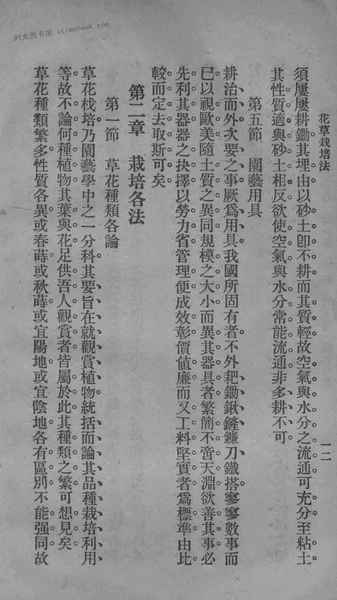 花草栽培法
一二
須屢屢耕鋤其理由以砂土卽不耕而其質輕故空氣與水分之流通可充分至粘土
其性質適與砂土相反欲使空氣與水分常能流通非多耕不可
第五節 園藝用具
耕治而外次要之事厥爲用具我國所固有者不外耙鋤鍬鏟鐮刀鐵搭寥寥數事而
已以視歐美隨土質之異同規模之大小而異其器具者繁簡不啻天淵欲善其事必
先利其器器之抉擇以勞力省管理便成效彰價値廉而又工料堅實者爲標準由比
較而定去取斯可矣
第二章 栽培各法
第一節 草花種類各論
草花栽培乃園藝學中之一分科其要旨在就觀賞植物統括而論其品種栽培利用
等故不論何種植物其葉與花足供吾人觀賞者皆屬於此其種類之繁可想見矣
草花種類繁多性質各異或春蒔或秋蒔或宜陽地或宜陰地各有區別不能強同故